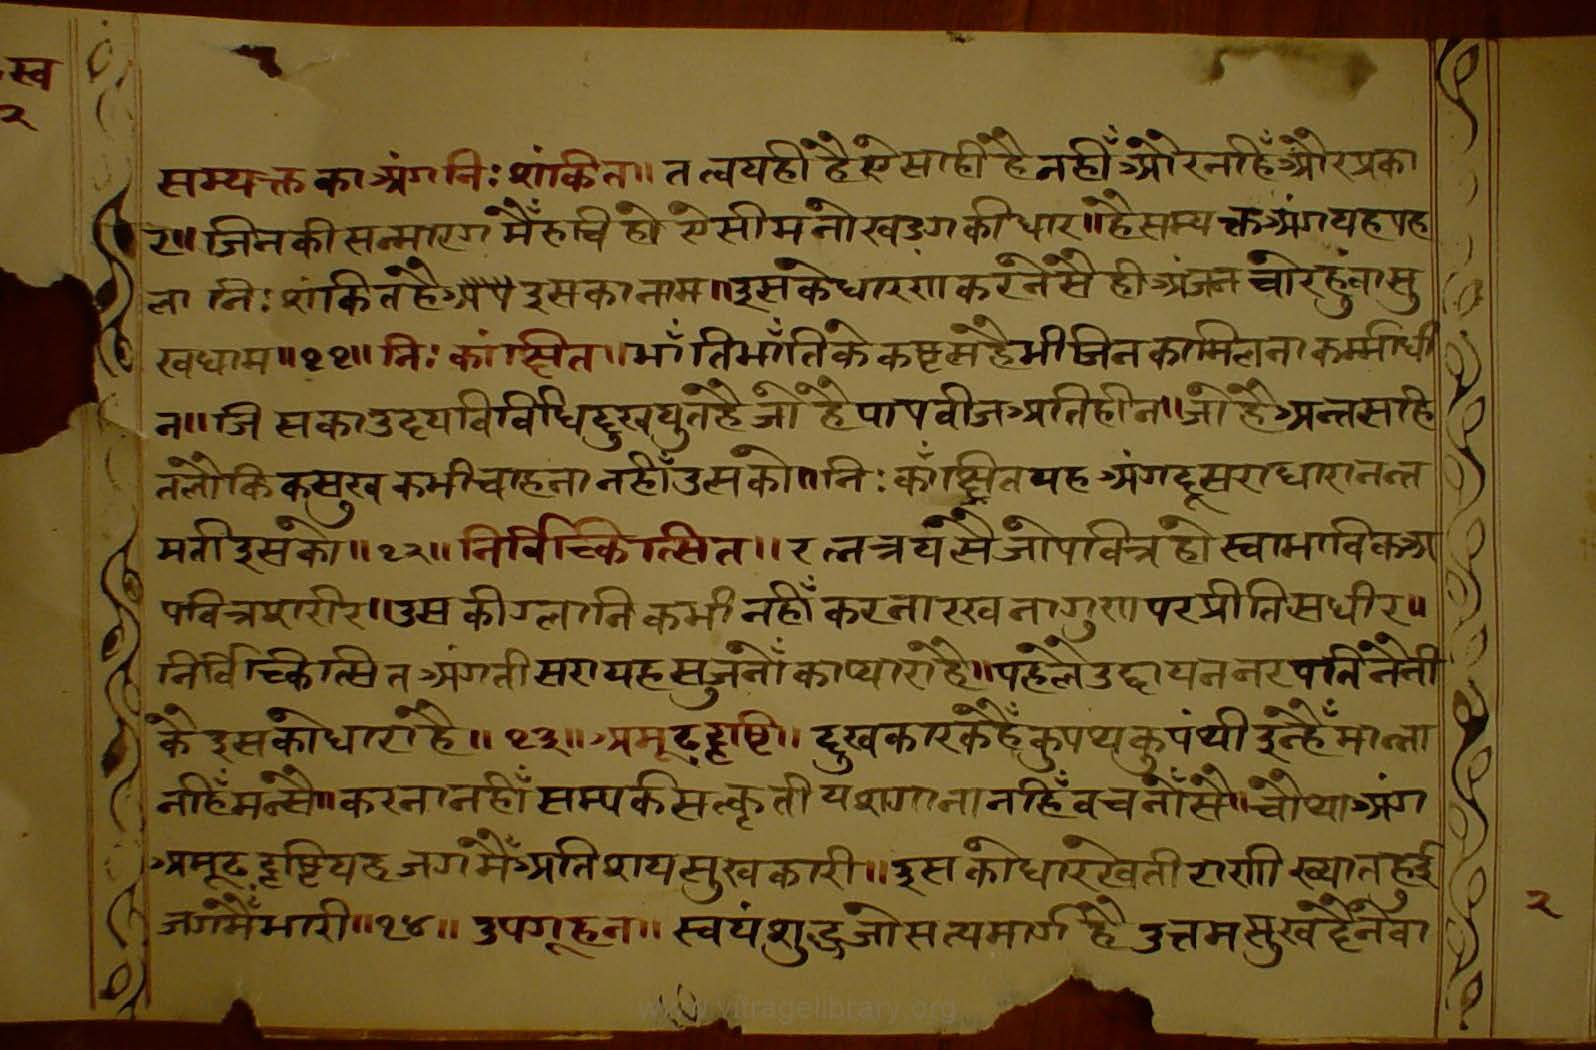 स्व
२
सम्यक्त का अंग निः शंकित॥ तत्वयही है ऐसाही है नहीँ और नहिँ और प्रका
र॥ जिनकी सन्मारग मेँ रुचि हो ऐसी मनो खड्ग की धार॥ है सम्यक्त अंग यह पह
ला निः शंकित है इसका नाम॥ इसके धारण करने से ही अंजन चोर हुवा सु
खधाम॥११॥ निः कांक्षित॥ भाँति भाँति के कष्ट सहे भी जिन का मिलना कर्म्माधी
न॥ जिसका उदय विविधि दुखयुत है जो है पाप बीज अति हीन॥ जो है अन्त सहि
त लौकिक सुख कभी चाहना नहीँ उसको॥ निः काँक्षित यह अंग दूसरा धारा नन्त
मती इसको॥१२॥ निर्विचिकित्सित॥ रत्नत्रय से जो पवित्र हो स्वाभाविक अ
पवित्र शरीर॥ उसकी ग्लानि कभी नहीँ करना रखना गुण पर प्रीति सधीर॥
निर्विचिकित्सित अंग तीसरा यह सुजनोँ का प्यारा है॥ पहले उद्दायन नरपति ने नी
के इसको धारा है॥१३॥ अमूढ़दृष्टि॥ दुखकारक हैँ कुपथ कुपंथी इन्हैँ मान्ना
नहिँ मन्से॥ करना नहीँ सम्पर्क सत्कृती यश गाना नहिँ वचनोँ से॥ चौथा अंग
अमूढ़दृष्टि यह जग मेँ अतिशय सुखकारी॥ इसको धार रेवती राणी ख्यात हुई
जग मेँ भारी॥१४॥ उपगूहन॥ स्वयं शुद्ध जो सत्य मार्ग है उत्तम सुख देने वा
२
www.vitragelibrary.org